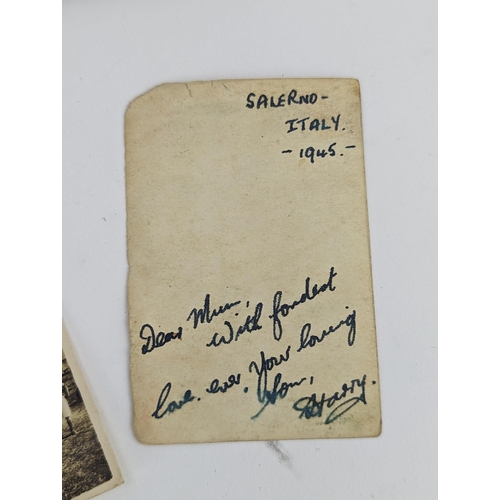 SALERNO -
ITALY.
- 1945. -
Dear Mum,
With fondest
love. ever. Your loving
Son,
Harry.